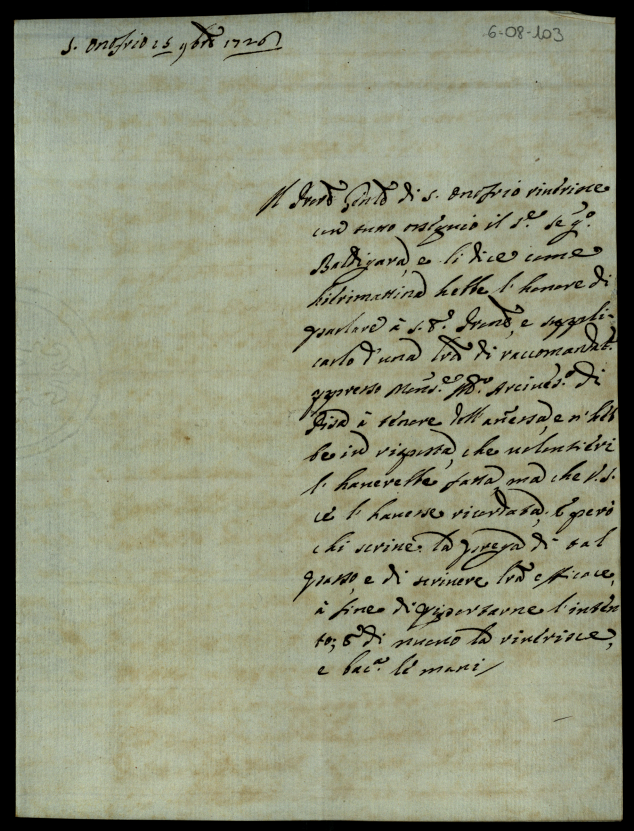 6-08-103
S. Onofrio 15 9bre 1726
Il Prior Gnle di S. Onofrio riverisce
con tutto ossequio il Sr. Segr.o
Baldigara, e li dice come
hierimattina hebbe l'honore di
parlare à S. E. Prone, e suppli-
carlo d'una lra di raccomandat.
appresso Mons.r Arcives.o di
Pisa à tenore dell'annessa, e n'heb
be in risposta, che volentieri
l'haverebbe fatta, ma che V.S.
ce l'havesse ricordata. E però
chi scrive la prega di tal
grazia, e di scrivere lra efficace,
à fine di riportarne l'inten
to; e di nuovo la riverisce,
e bac.a le mani